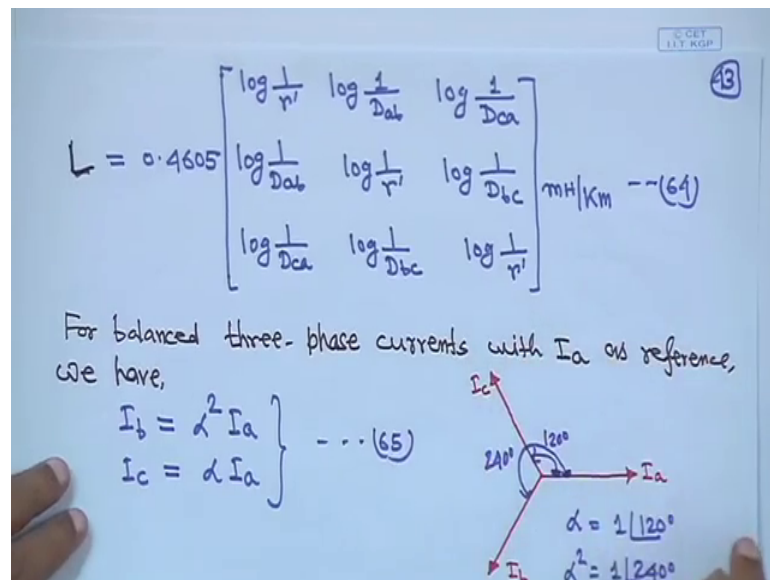 © CET
I.I.T. KGP
43
L = 0.4605 [ log 1/r' log 1/Dab log 1/Dca
log 1/Dab log 1/r' log 1/Dbc
log 1/Dca log 1/Dbc log 1/r' ] mH/Km --(64)
For balanced three-phase currents with Ia as reference,
we have,
Ib = α² Ia
Ic = α Ia } --- (65)
Ic
120°
240°
Ia
α = 1∠120°
Ib
α² = 1∠240°